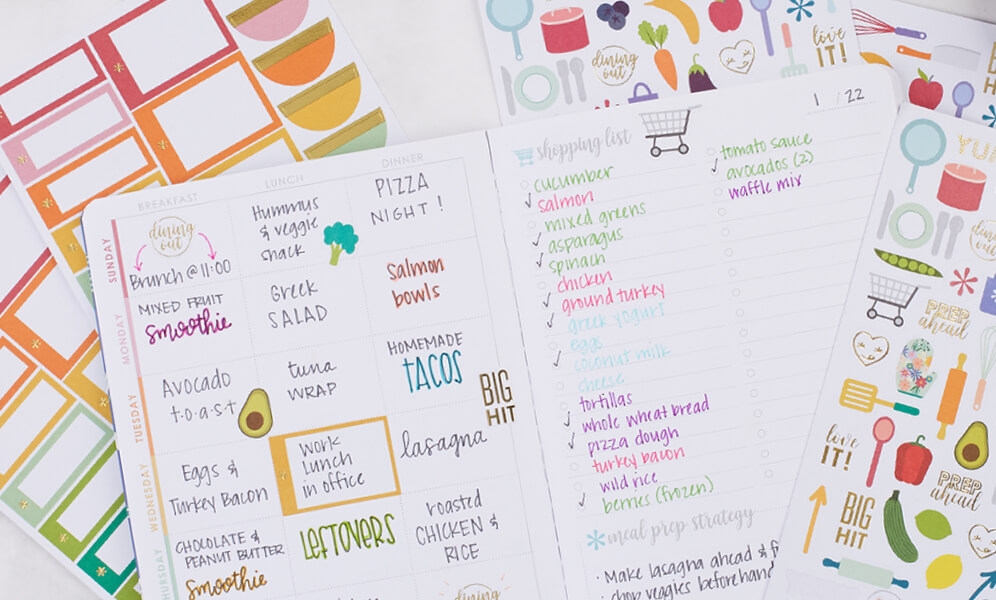 BREAKFAST
LUNCH
DINNER
SUNDAY
dining
out
Brunch @ 11:00
Hummus
& veggie
snack
PIZZA
NIGHT!
MONDAY
MIXED FRUIT
smoothie
Greek
SALAD
Salmon
bowls
TUESDAY
Avocado
t·o·a·s·t
tuna
WRAP
HOMEMADE
tacos
BIG
HIT
WEDNESDAY
Eggs &
Turkey Bacon
work
lunch
in office
lasagna
THURSDAY
CHOCOLATE &
PEANUT BUTTER
Smoothie
LEFTOVERS
roasted
CHICKEN &
RICE
dining
shopping list
1 / 22
cucumber
salmon
mixed greens
asparagus
spinach
chicken
ground turkey
greek yogurt
eggs
coconut milk
cheese
tortillas
whole wheat bread
pizza dough
turkey bacon
wild rice
berries (frozen)
tomato sauce
avocados (2)
waffle mix
meal prep strategy
· Make lasagna ahead & f
· chop veggies beforehan
dining
out
love
IT!
BI
H
YU
dining
out
PREP
ahead
love
IT!
PREP
ahead
BIG
HIT